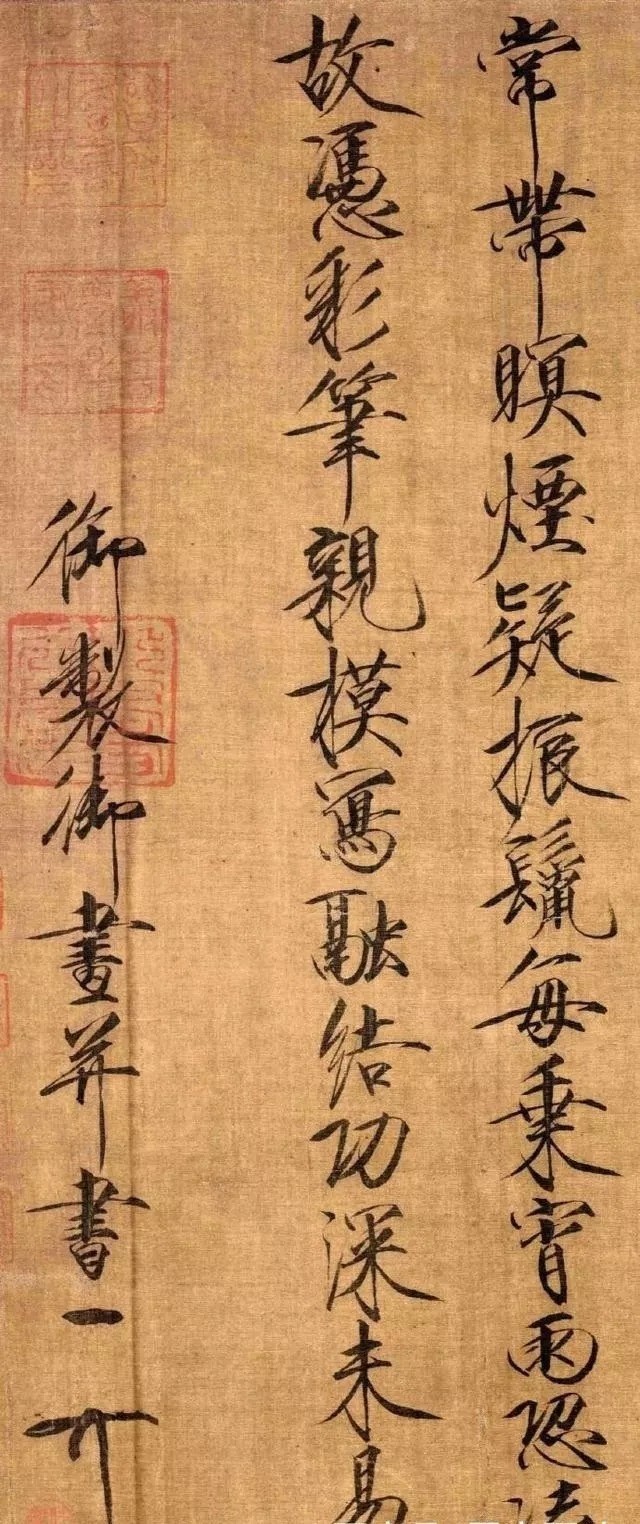 常帶瞑煙疑振鬣每乗宵雨恐
故憑彩筆親模寫融結功深未易
御製御畫并書一